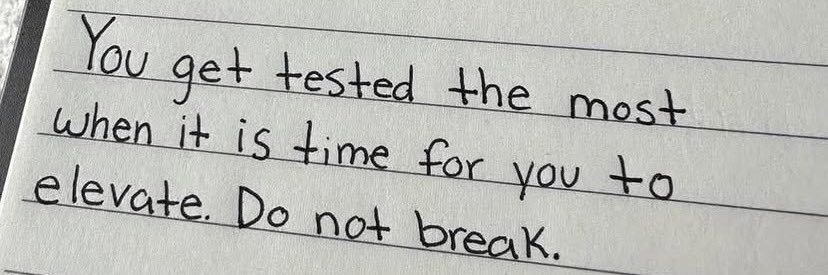 You get tested the most
when it is time for you to
elevate. Do not break.